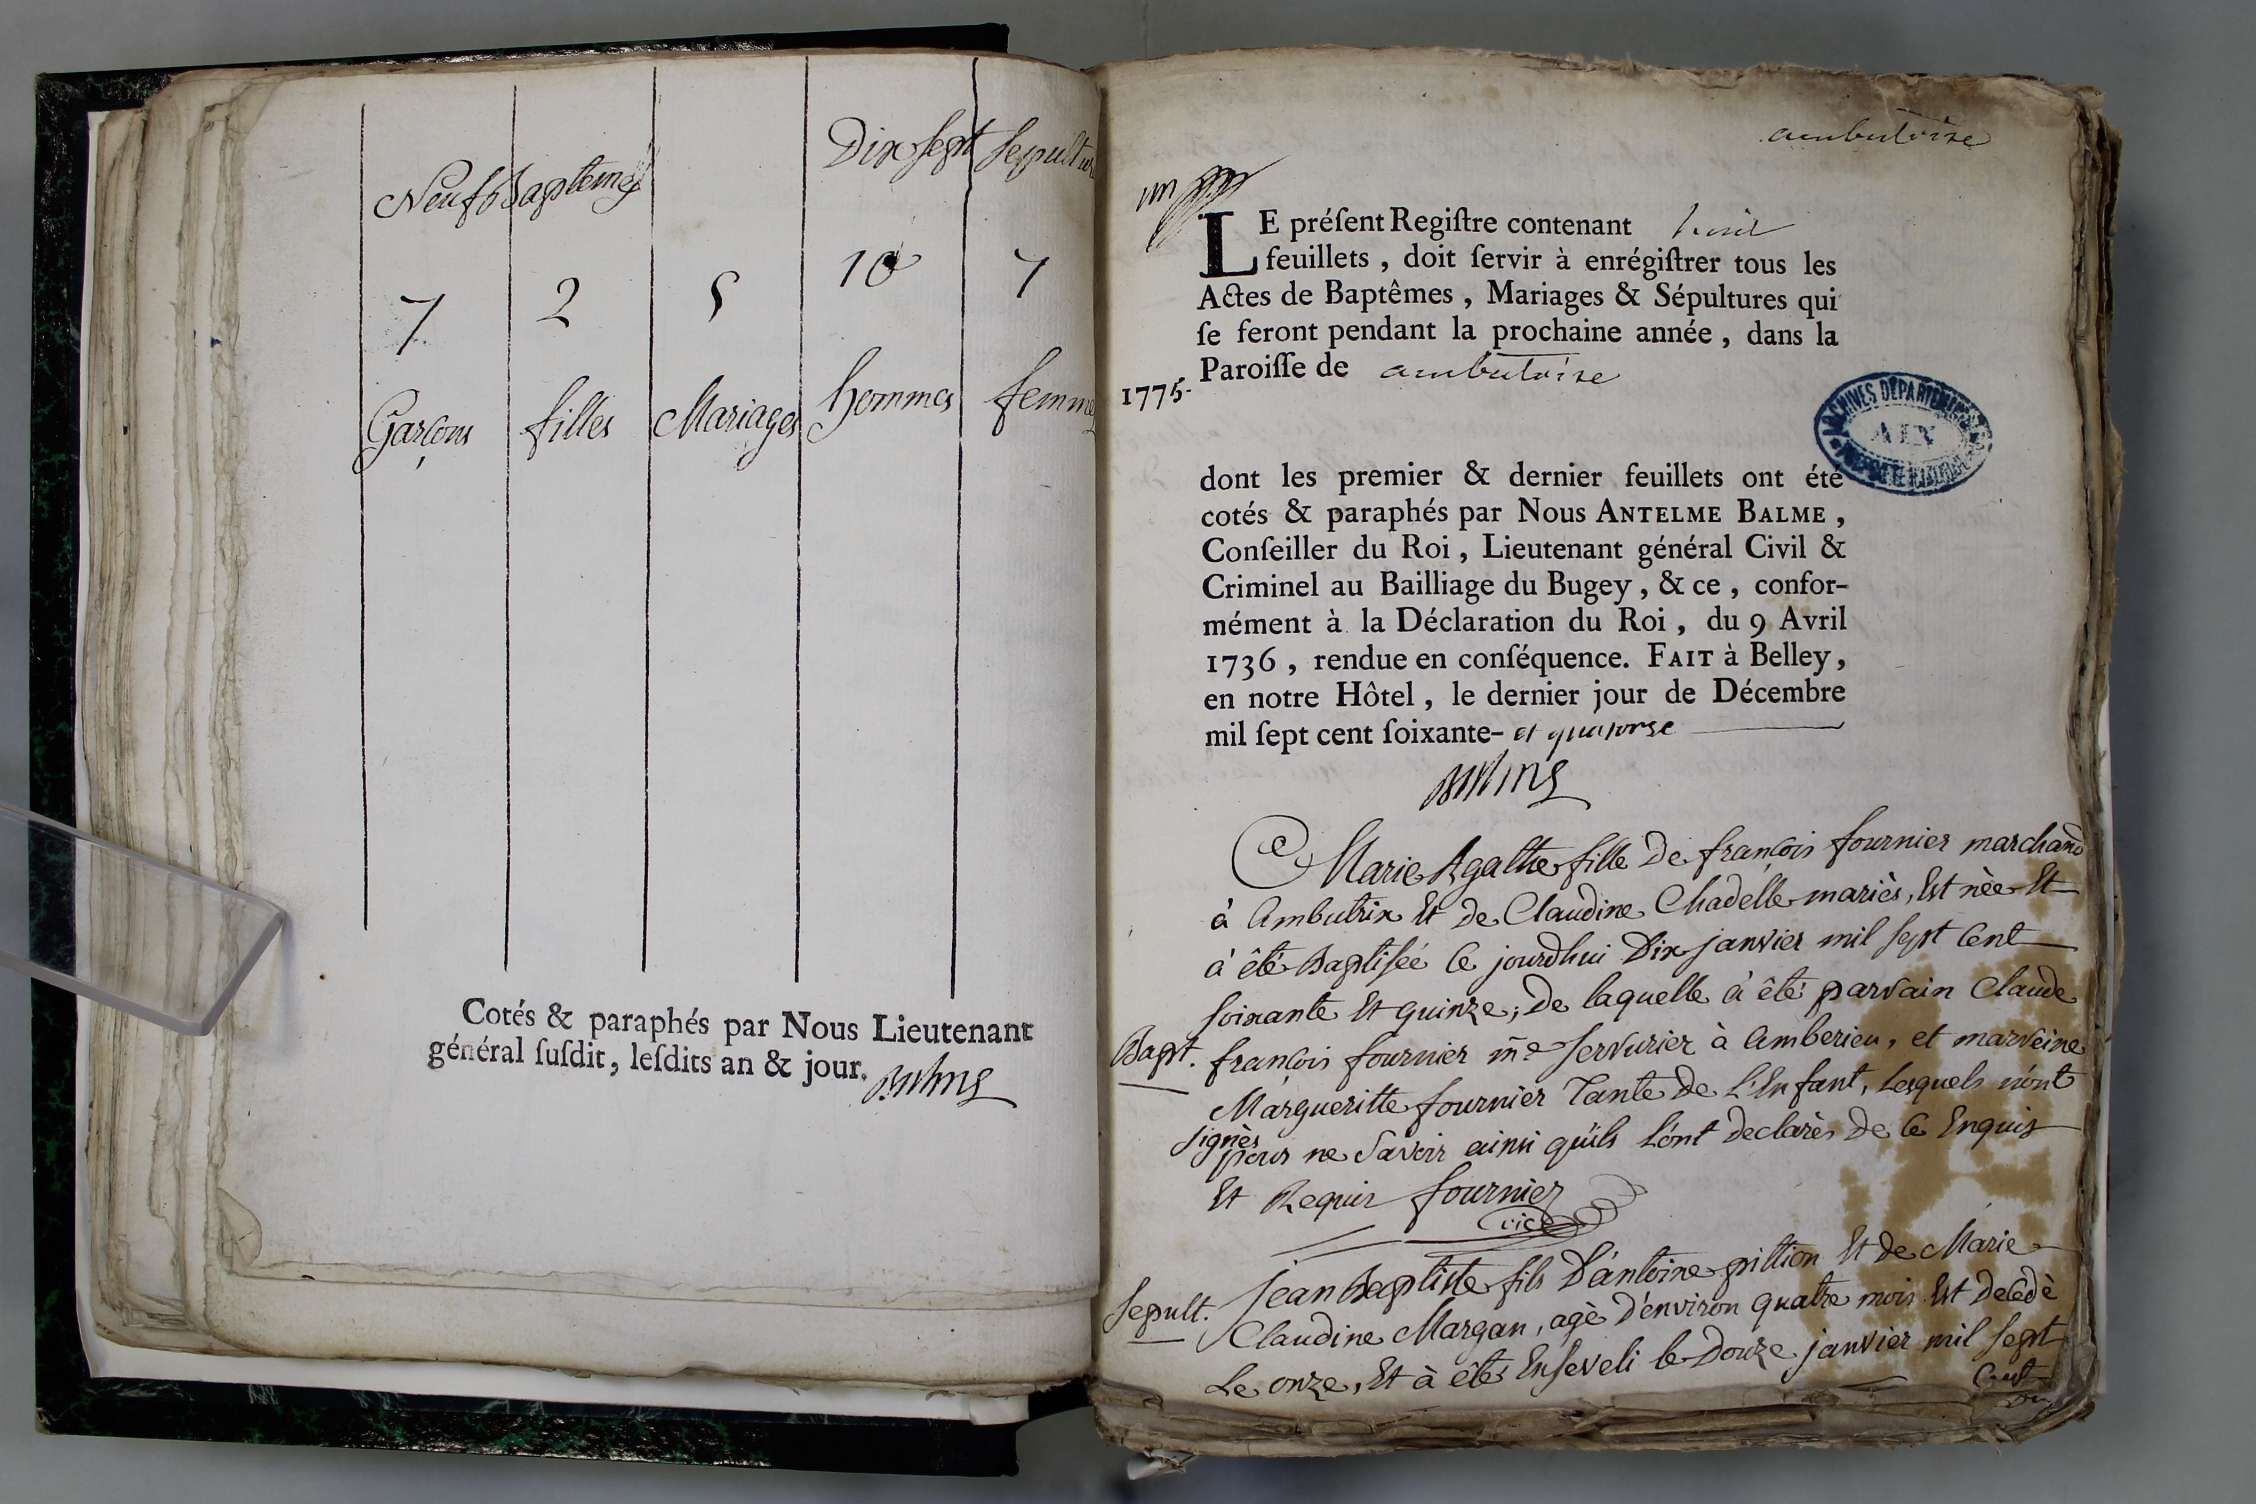 Neuf Baptemes
Dix sept sepultur
7 2 5 10 7
Garçons filles Mariages hommes femmes
Cotés & paraphés par Nous Lieutenant
général ſuſdit, leſdits an & jour.
Balme
ambutoire
un
LE préſent Regiſtre contenant huit
feuillets, doit ſervir à enrégiſtrer tous les
Actes de Baptêmes, Mariages & Sépultures qui
ſe feront pendant la prochaine année, dans la
Paroiſſe de ambutoire
1775.
ARCHIVES DÉPARTEMENTALES
AIN
dont les premier & dernier feuillets ont été
cotés & paraphés par Nous ANTELME BALME,
Conſeiller du Roi, Lieutenant général Civil &
Criminel au Bailliage du Bugey, & ce, confor-
mément à la Déclaration du Roi, du 9 Avril
1736, rendue en conſéquence. FAIT à Belley,
en notre Hôtel, le dernier jour de Décembre
mil ſept cent ſoixante- et quatorse
Balme
Marie Agathe fille De françois fournier marchand
à Ambutrix Et de Claudine Chadelle mariès, Est nèe Et
à êté Baptisée Ce jourdhui Dix janvier mil sept Cent
soixante Et quinze; De laquelle à êté parrain Claude
Bapt. françois fournier me serrurier à Amberieu, et marreine
Margueritte fournier Tante De L'Enfant, Lesquels n'ont
signès
pour ne savoir ainsi qu'ils L'ont declarès De Ce Enquis
Et Requis fournier
vice
Sepult. Jean Baptiste fils D'antoine pittion Et De Marie
Claudine Margan, agè D'environ quatre mois Est Decèdè
Le onze, Et à êté Enseveli le Douze janvier mil sept
Cent